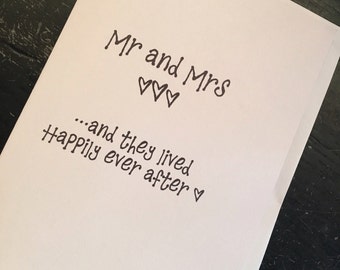 Mr and Mrs
♡♡♡
...and they lived
Happily ever after ♡